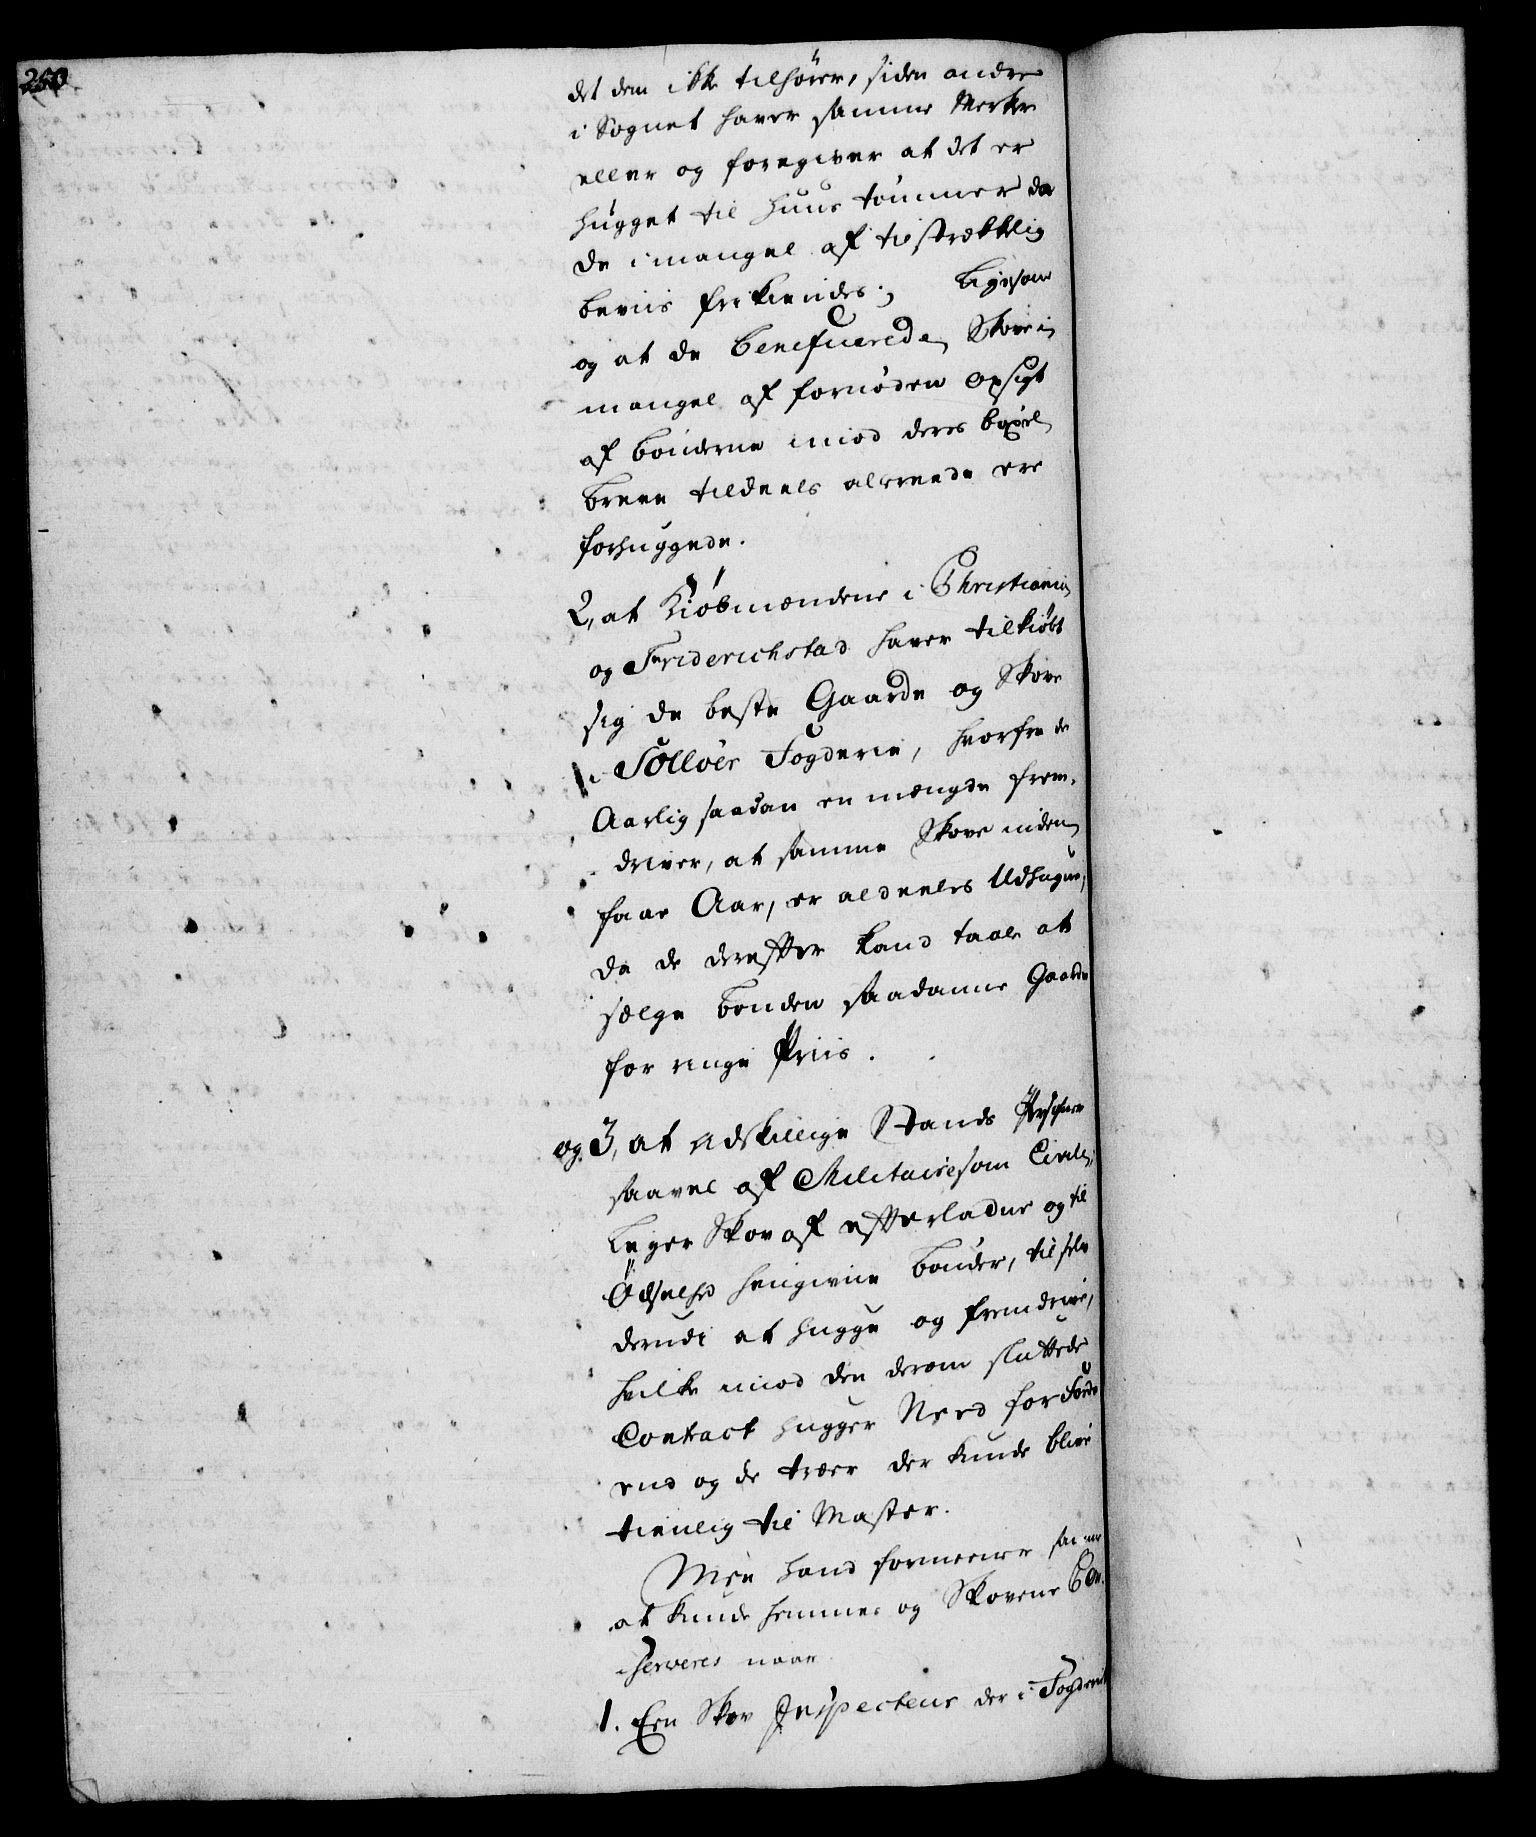 250
det dem ikke tilhører, siden andre
i Sognet haver samme Merke
eller og foregiver at det er
hugget til Huus tømmer da
de i mangel af tilstrekkelig
beviis frikiendes; Ligesom
og at de beneficerede Skove i
mangel af fornøden opsigt
af bønderne imod deres bøxel
breve tildeels allereede ere
forhuggede.
2, at Kiøbmændene i Christiania
og Friderichstad haver tilkiøbt
sig de beste Gaarde og Skove
i Solløer Fogderie, hvorfra de
Aarlig saadan en mængde frem-
driver, at samme Skove inden
faae Aar, er aldeeles Udhugne,
da de derefter kand taale at
sælge bonden saadanne Gaarde
for ringe Priis.
og 3, at adskillige Stands Persohner
saavel af Militaire som Civile,
Leyer Skov af efterladne og til
Ødselhed hengivne bønder, til selv
derudi at hugge og fremdrive,
hvilke imod den derom sluttede
Contract hugger Need for Fode
end og de træer der kunde blive
tienlig til Master.
Men hand formeener saadant
at kunde hemmes og Skovene Con-
serveres naar
1. Een Skov Inspecteur der i Fogderiet